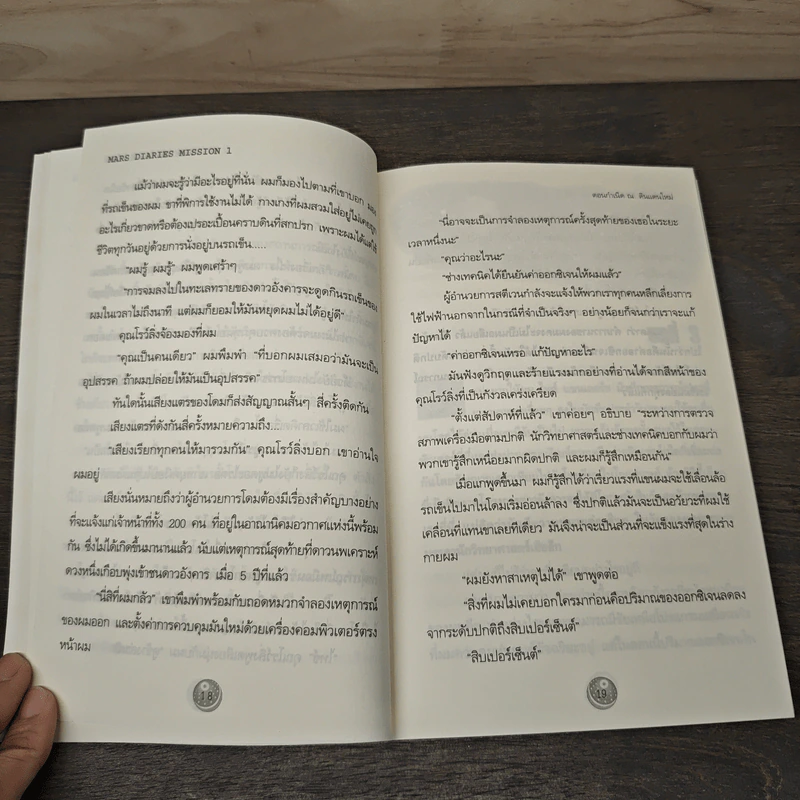 MARS DIARIES MISSION 1
แม้ว่าผมจะรู้ว่ามีอะไรอยู่ที่นั่น ผมก็มองไปตามที่เขาบอก มอง
ที่รถเข็นของผม ขาที่พิการใช้งานไม่ได้ กางเกงที่ผมสวมใส่อยู่ไม่เคยถูก
อะไรเกี่ยวขาดหรือต้องเปรอะเปื้อนคราบดินที่สกปรก เพราะผมได้แต่ใช้
ชีวิตทุกวันอยู่ด้วยการนั่งอยู่บนรถเข็น.....
"ผมรู้ ผมรู้" ผมพูดเศร้าๆ
"การจมลงไปในทะเลทรายของดาวอังคารจะดูดกินรถเข็นของ
ผมในเวลาไม่ถึงนาที แต่ผมก็ยอมให้มันหยุดผมไม่ได้อยู่ดี"
คุณโรว์ลิ่งจ้องมองที่ผม
"คุณเป็นคนเดียว" ผมพึมพำ "ที่บอกผมเสมอว่ามันจะเป็น
อุปสรรค ถ้าผมปล่อยให้มันเป็นอุปสรรค"
ทันใดนั้นเสียงแตรของโดมก็ส่งสัญญาณสั้นๆ สี่ครั้งติดกัน
เสียงแตรที่ดังกันสี่ครั้งหมายความถึง....
"เสียงเรียกทุกคนให้มารวมกัน" คุณโรว์ลิ่งบอก เขาอ่านใจ
ผมอยู่
เสียงนั่นหมายถึงว่าผู้อำนวยการโดมต้องมีเรื่องสำคัญบางอย่าง
ที่จะแจ้งแก่เจ้าหน้าที่ทั้ง 200 คน ที่อยู่ในอาณานิคมอวกาศแห่งนี้พร้อม
กัน ซึ่งไม่ได้เกิดขึ้นมานานแล้ว นับแต่เหตุการณ์สุดท้ายที่ดาวนพเคราะห์
ดวงหนึ่งเกือบพุ่งเข้าชนดาวอังคาร เมื่อ 5 ปีที่แล้ว
"นี่สิที่ผมกลัว" เขาพึมพำพร้อมกับถอดหมวกจำลองเหตุการณ์
ของผมออก และตั้งค่าการควบคุมมันใหม่ด้วยเครื่องคอมพิวเตอร์ตรง
หน้าผม
18
ตอนกำเนิด ณ ดินแดนใหม่
"นี่อาจจะเป็นการจำลองเหตุการณ์ครั้งสุดท้ายของเธอในระยะ
เวลาหนึ่งนะ"
"คุณว่าอะไรนะ"
"ช่างเทคนิคได้ยืนยันค่าออกซิเจนให้ผมแล้ว"
ผู้อำนวยการสตีเวนกำลังจะแจ้งให้พวกเราทุกคนหลีกเลี่ยงการ
ใช้ไฟฟ้านอกจากในกรณีที่จำเป็นจริงๆ อย่างน้อยก็จนกว่าเราจะแก้
ปัญหาได้
"ค่าออกซิเจนเหรอ แก้ปัญหาอะไร"
มันฟังดูวิกฤตและร้ายแรงมากอย่างที่อ่านได้จากสีหน้าของ
คุณโรว์ลิ่งที่เป็นกังวลเคร่งเครียด
"ตั้งแต่สัปดาห์ที่แล้ว" เขาค่อยๆ อธิบาย "ระหว่างการตรวจ
สภาพเครื่องมือตามปกติ นักวิทยาศาสตร์และช่างเทคนิคบอกกับผมว่า
พวกเขารู้สึกเหนื่อยมากผิดปกติ และผมก็รู้สึกเหมือนกัน"
เมื่อแกพูดขึ้นมา ผมก็รู้สึกได้ว่าเรี่ยวแรงที่แขนผมจะใช้เลื่อนล้อ
รถเข็นไปมาในโดมเริ่มอ่อนล้าลง ซึ่งปกติแล้วมันจะเป็นอวัยวะที่ผมใช้
เคลื่อนที่แทนขาเลยทีเดียว มันจึงน่าจะเป็นส่วนที่จะแข็งแรงที่สุดในร่าง
กายผม
"ผมยังหาสาเหตุไม่ได้" เขาพูดต่อ
"สิ่งที่ผมไม่เคยบอกใครมาก่อนคือปริมาณของออกซิเจนลดลง
จากระดับปกติถึงสิบเปอร์เซ็นต์"
"สิบเปอร์เซ็นต์"
19